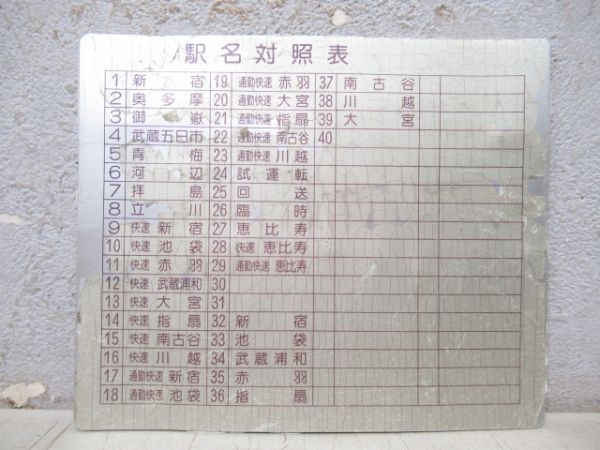 駅名対照表
1 新宿 19 通勤快速 赤羽 37 南古谷
2 奥多摩 20 通勤快速 大宮 38 川越
3 御嶽 21 通勤快速 指扇 39 大宮
4 武蔵五日市 22 通勤快速 南古谷 40
5 青梅 23 通勤快速 川越
6 河辺 24 試運転
7 拝島 25 回送
8 立川 26 臨時
9 快速 新宿 27 恵比寿
10 快速 池袋 28 快速 恵比寿
11 快速 赤羽 29 通勤快速 恵比寿
12 快速 武蔵浦和 30
13 快速 大宮 31
14 快速 指扇 32 新宿
15 快速 南古谷 33 池袋
16 快速 川越 34 武蔵浦和
17 通勤快速 新宿 35 赤羽
18 通勤快速 池袋 36 指扇